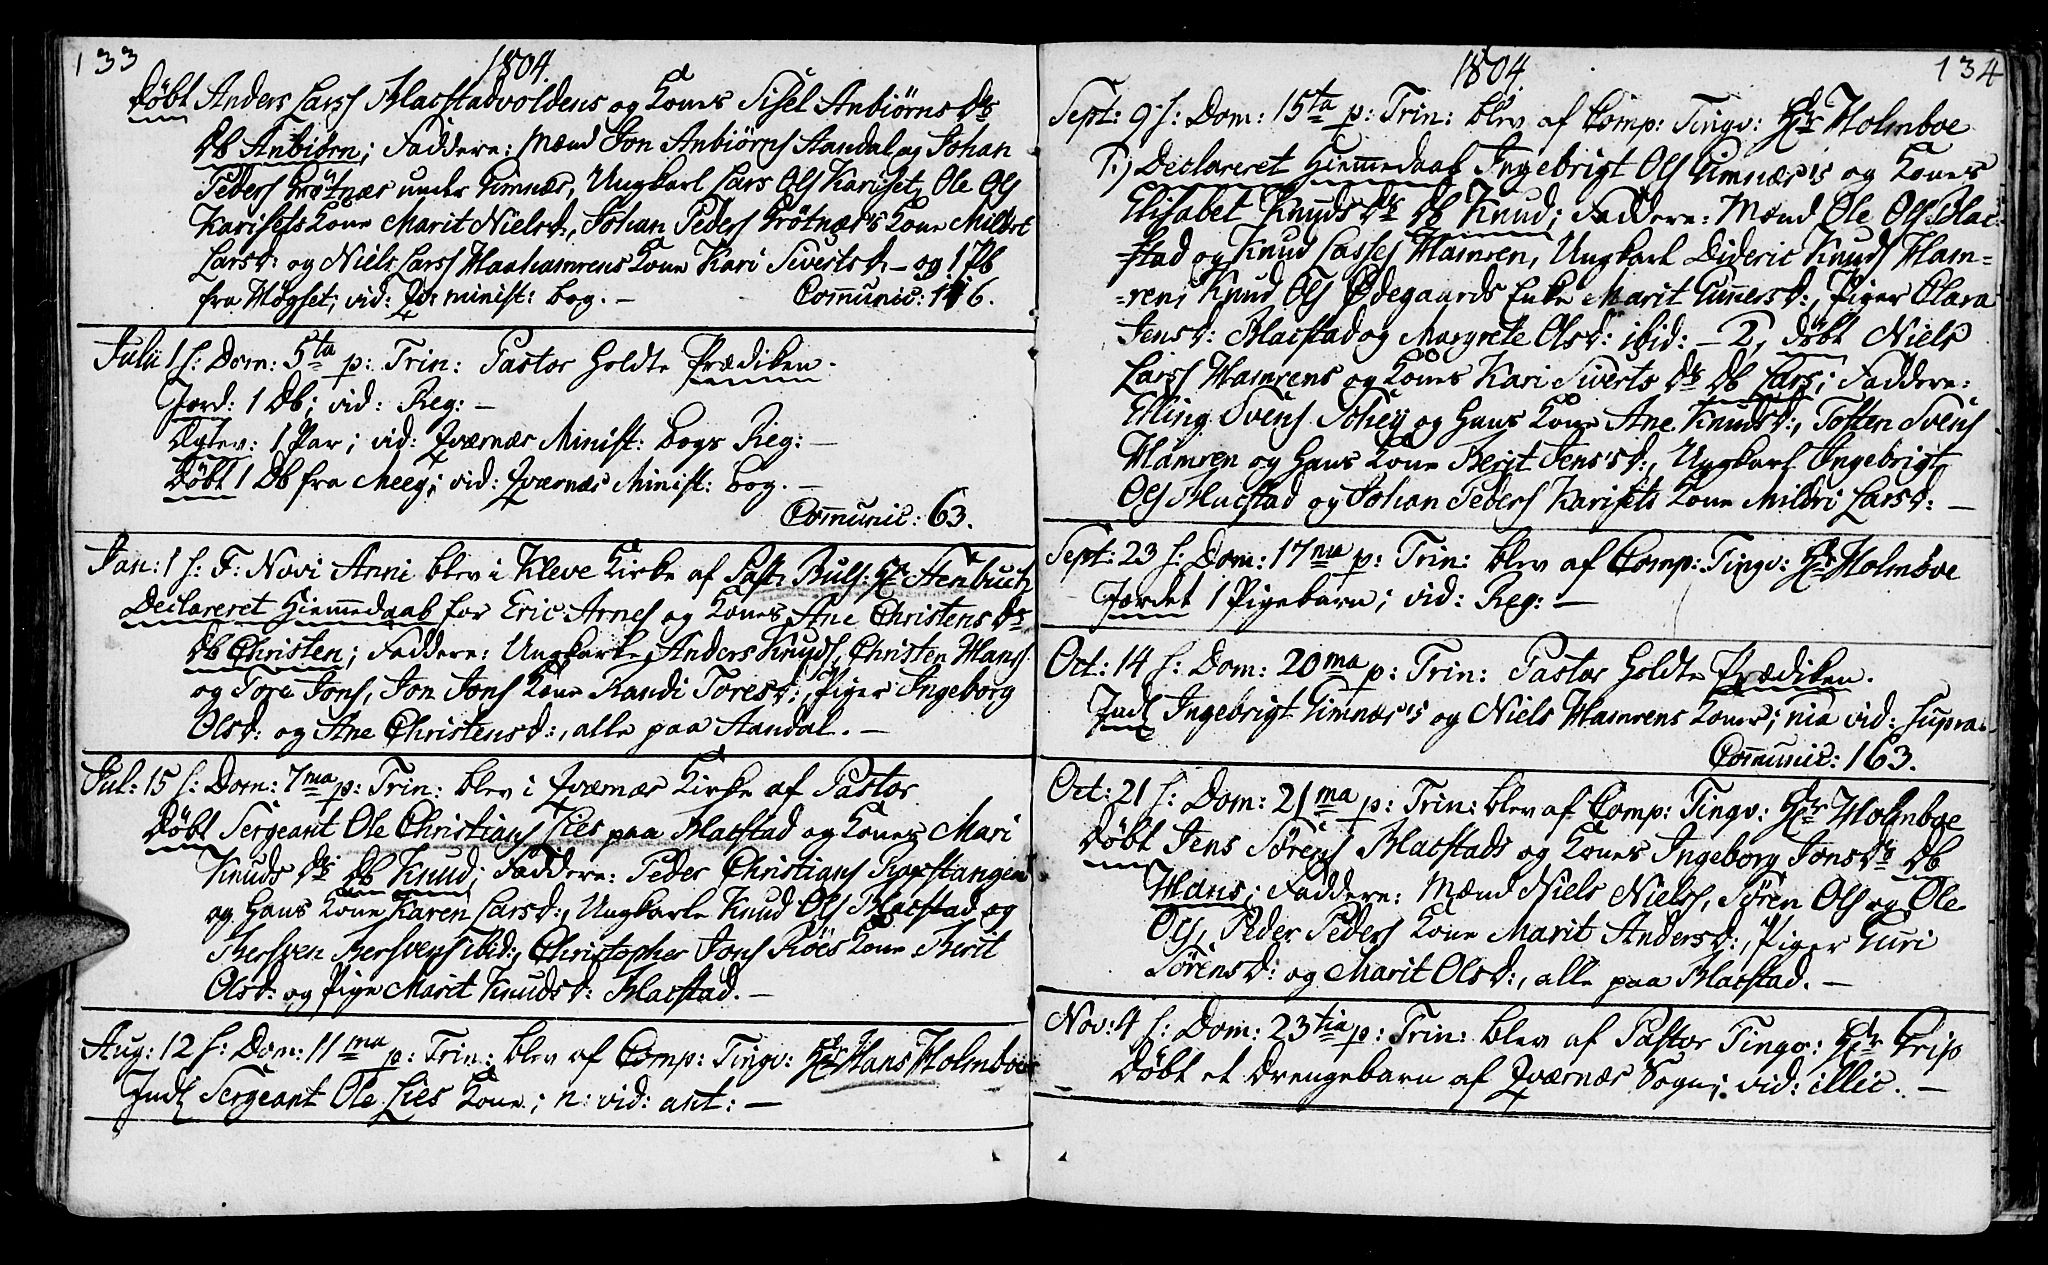 133
1804.
Døbt Anders Larss Blacstadvoldens og Kones Sisel Anbiörns Dr
Db Anbiørn; Faddere: Mænd Jon Anbiörns Aandal og Johan
Peders Grötnæs under Gimnæs, Ungkarl Lars Ols Kariset, Ole Ols
Karisets Kone Marit Nielsd:, Johan Peders Grötnæs's Kone Mildri
Larsd: og Niels Larss Haahamrens Kone Kari Sivertsd. – og 1 Pb
fra Høgset; vid: Qv: minist: bog. – Communic: 116.
Julii 1 s: Dom: 5ta p: Trin: Pastor holdte Prædiken.
Jord: 1 Db; vid: Reg: –
Egtev: 1 Par; vid: Qværnæs Minist: bogs Reg: –
Døbt 1 Db fra Meeg; vid: Qværnæs Minist: bog. –
Communic: 63.
Jan: 1 s: F: Novi Anni blev i Kleve Kirke af Past: Buls: Hr Stenbuch
Declareret Hiemmedaab for Eric Arnes og Kones Ane Christens Dr
Db Christen; Faddere: Ungkarle Anders Knuds, Christen Hans
og Tore Jons, Jon Jons Kone Randi Toresd:, Piger Ingeborg
Olsd: og Ane Christensd:, alle paa Aandal. –
Jul: 15 s: Dom: 7ma p: Trin: blev i Qværnæs Kirke af Pastor
Døbt Sergeant Ole Christians Lies paa Blacstad og Kones Mari
Knuds Dr Db Knud; Faddere: Peder Christians Ravstangen
og hans Kone Karen Larsd:, Ungkarle Knud Ols Blacstad og
Bersven Bersvens ibid:, Christopher Jons Röes Kone Berit
Olsd: og Pige Marit Knudsd: Blacstad. –
Aug: 12 s: Dom: 11ma p: Trin: blev af Comp: Tingv: Hr Hans Holmboe
Indl Sergeant Ole Lies Kone; n: vid: ant: –
1804.
134
Sept: 9 s: Dom: 15ta p: Trin: blev af Comp: Tingv: Hr Holmboe
1.) Declareret Hiemmedaab Ingebrigt Ols Gimnæs's og Kones
Elisabet Knuds Dr Db Knud; Faddere: Mænd Ole Ols Blac-
-stad og Knud Lasses Hamren, Ungkarl Dideric Knuds Ham-
-ren, Knud Ols Ødegaards Enke Marit Gunersd:, Piger Clara
Jensd: Blacstad og Margrete Olsd: ibid: – 2, Døbt Niels
Larss Hamrens og Kones Kari Siverts Dr Db Lars; Faddere:
Elling Svens Sohey og hans Kone Ane Knudsd:, Tosten Svens
Hamren og hans Kone Berit Jens'sd:, Ungkarl Ingebrigt
Ols Blacstad og Johan Peders Karisets Kone Mildri Larsd: –
Sept: 23 s: Dom: 17ma p: Trin: blev af Comp: Tingv: Hr Holmboe
Jordet 1 Pigebarn; vid: Reg: –
Oct: 14 s: Dom: 20ma p: Trin: Pastor holdte Prædiken.
Indl Ingebrigt Gimnæs's og Niels Hamrens Koner; nia vid: supra.
Communic: 163.
Oct: 21 s: Dom: 21ma p: Trin: blev af Comp: Tingv: Hr Holmboe
Døbt Jens Sörens Blacstads og Kones Ingeborg Jons Dr Db
Hans; Faddere: Mænd Niels Niels, Sören Ols og Ole
Ols, Peder Peders Kone Marit Andersd:, Piger Guri
Sörensd: og Marit Olsd:, alle paa Blacstad. –
Nov: 4 s: Dom: 23tia p: Trin: blev af Pastor Tingv: Hr Grip
Døbt et Drengebarn af Qværnæs Sogn; vid: illic. –